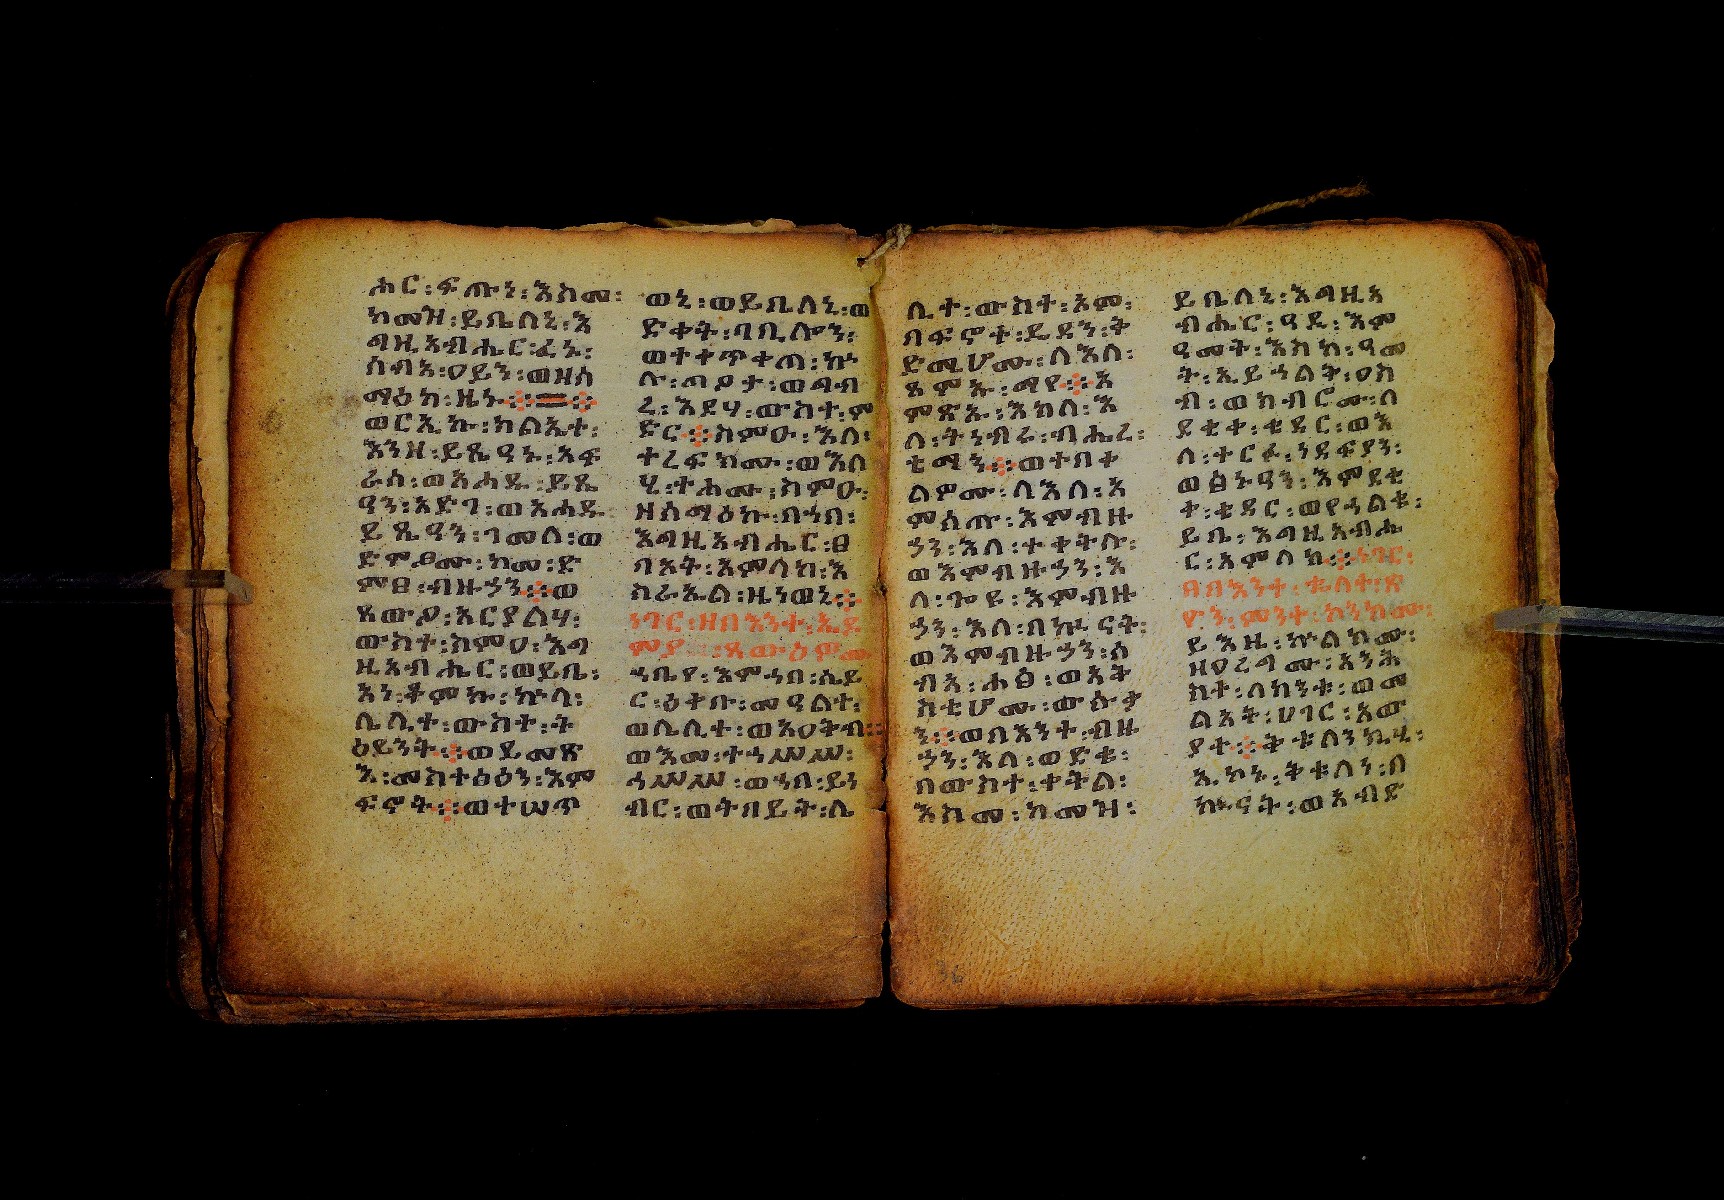 ሐር፡ፍጡነ፡እስመ፡
ከመዝ፡ይቤለኒ፡እ
ግዚአብሔር፡ፈኑ፡
ሰብአ፡ዐይን፡ወዘሰ
ማዕከ፡ዜኑ።
ወርኢኩ፡ክልኤተ፡
እንዘ፡ይጼዓኑ፡አፍ
ራሰ፡ወአሐዱ፡ይጼ
ዓን፡አድገ፡ወአሐዱ
ይጼዓን፡ገመለ፡ወ
ድምፆሙ፡ከመ፡ድ
ምፀ፡ብዙኃን።ወ
ጸውዖ፡አርያልሃ፡
ውስተ፡ስምዐ፡እግ
ዚአብሔር፡ወይቤ፡
አነ፡ቆመኩ፡ኵላ፡
ሌሊተ፡ውስተ፡ት
ዕይንት።ወይመጽ
እ፡መስተፅዕን፡እም
ፍኖት።ወተሠጥ
ወኒ፡ወይቤለኒ፡ወ
ድቀት፡ባቢሎን፡
ወተቀጥቀጠ፡ኵ
ሉ፡ጣዖታ፡ወግብ
ረ፡እደሃ፡ውስተ፡ም
ድር።ስምዑ፡እለ፡
ተረፍክሙ፡ወእለ
ሂ፡ተሐሙ፡ስምዑ፡
ዘሰማዕኩ፡በኀበ፡
እግዚአብሔር፡ፀ
ባኦት፡አምላከ፡እ
ስራኤል፡ዜነወኒ።
ነገር፡ዘበእንተ፡ኤዶ
ጸውዕዎሙ
ኀቤየ፡እምኀበ፡ሴይ
ር፡ዕቀቡ፡መዓልተ፡
ወሌሊተ፡
ወእመ፡
ወኀበ፡ይነ
ብር፡ወትበይት፡ሌ
ሊተ፡ውስተ፡አም፡
በፍኖተ፡ዴዳን፡ት
ድሜሆሙ፡ለእለ፡
ጸምኡ፡ማየ።እ
ምጽኡ፡እክለ፡እ
ለ፡ትነብሩ፡ብሔረ፡
ቴማን።ወተበቀ
ልዎሙ፡ለእለ፡አ
ምሰጡ፡እምብዙ
ኃን፡እለ፡ተቀትሉ፡
ወእምብዙኃን፡እ
ለ፡ጐዩ፡እምብዙ
ኃን፡እለ፡በኲናት፡
ወእምብዙኃን፡ሰ
ብአ፡ሐፅ፡
ን።ወበእንተ፡ብዙ
ኃን፡እለ፡ወድቁ፡
በውስተ፡ቀትል፡
እስመ፡ከመዝ፡
ይቤለኒ፡እግዚአ
ብሔር፡ዓዲ፡እም
ዓመት፡እስከ፡ዓመ
ት፡ኢይኀልቅ፡ዐስ
ብ፡ወክብሮሙ፡ለ
ደቂቀ፡ቄዳር፡ወእ
ለ፡ተርፉ፡ነደፍያን፡
ወፅኑዓን፡እምደቂ
ቀ፡ቄዳር፡ወየኀልቁ፡
ይቤ፡እግዚአብሔ
ር፡አምላክ።ነገር፡
ዘበእንተ፡ቈላተ፡ጽ
ዮን፡ምንተ፡ኮንክሙ፡
ይእዜ፡ኵልክሙ፡
ዘዐረግሙ፡አንሕ
ስተ፡ለከንቱ፡ወመ
ልአት፡ሀገር፡አው
ያተ።ቅቱለንኪሂ፡
ኢኮኑ፡ቅቱለነ፡በ
ኲናት፡ወአብድ
36